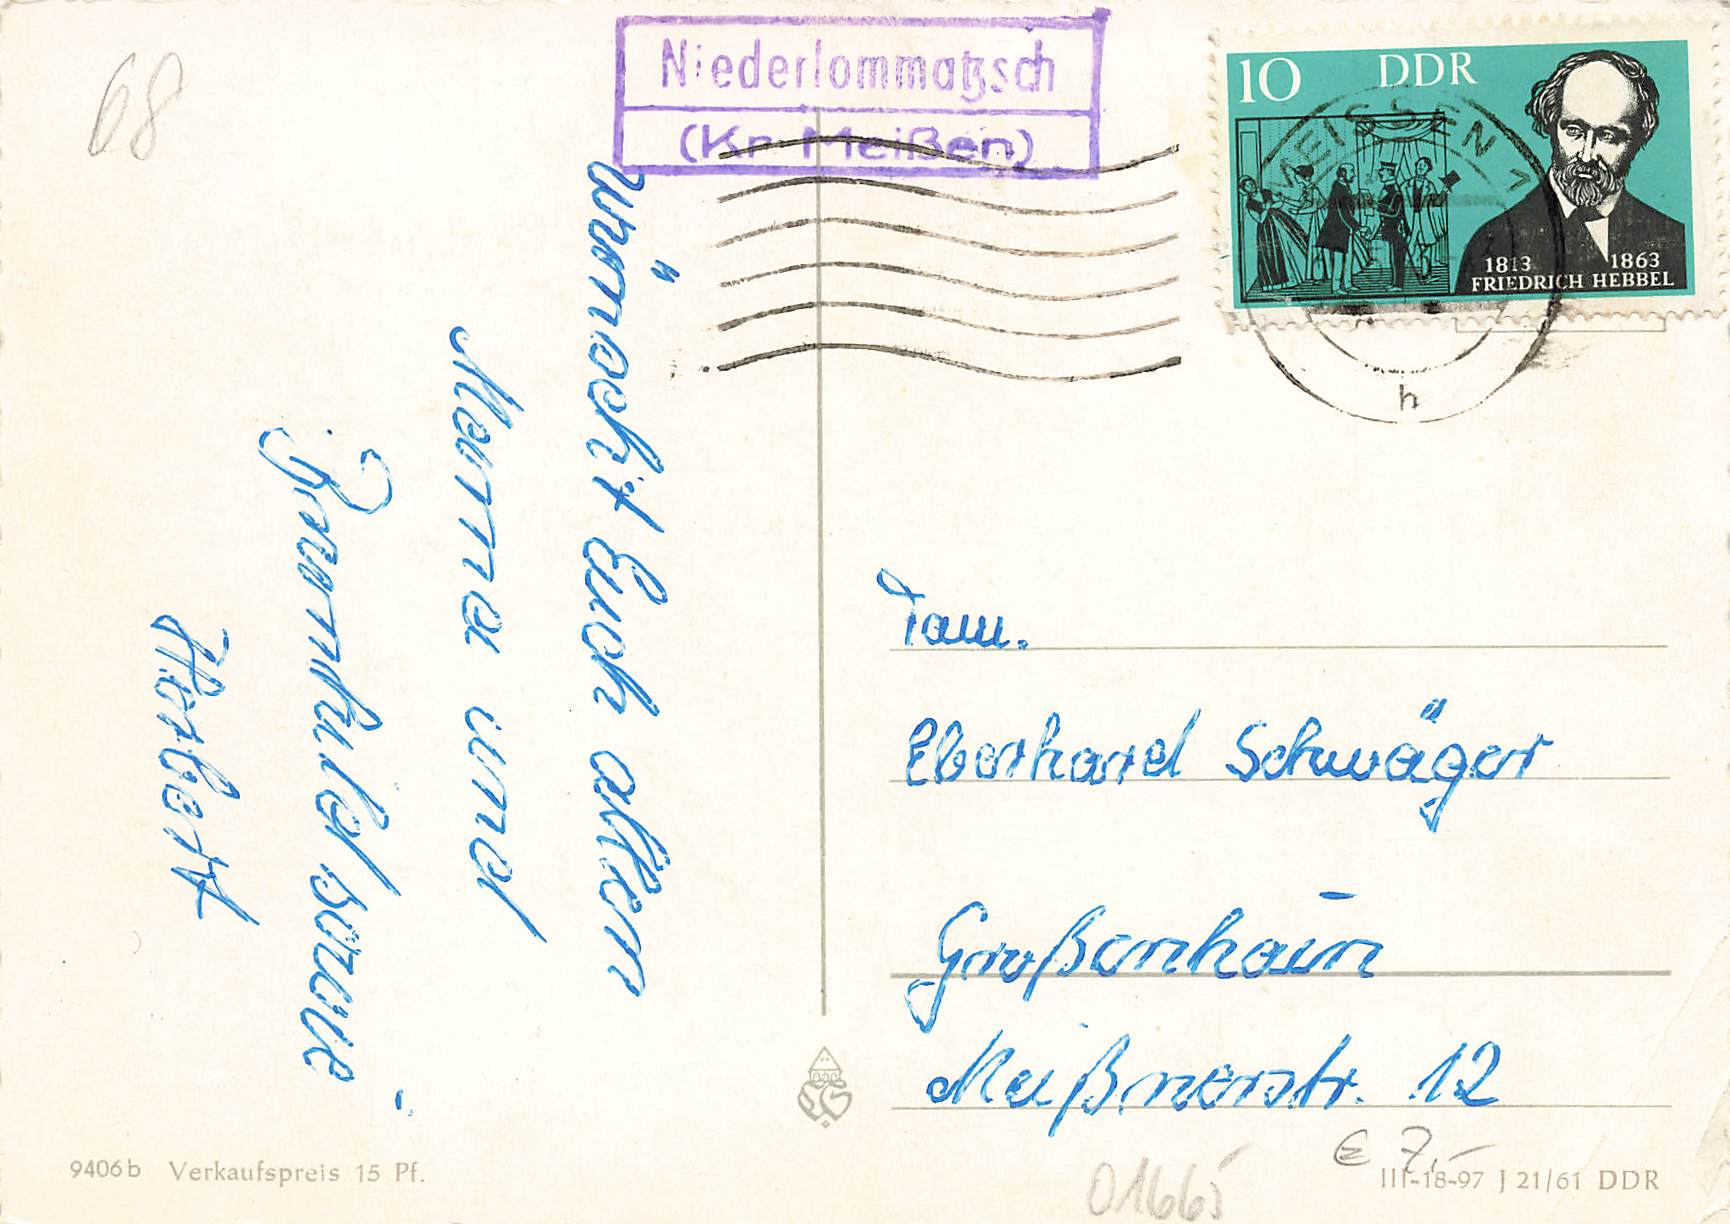 68
Niederlommatzsch
(Kr. Meißen)
10 DDR
1813 1863
FRIEDRICH HEBBEL
MEISSEN 1
h
wünscht Euch allen
Mama und
Herbert
Fam.
Eberhard Schwäger
Großenhain
Meißnerstr. 12
€ 7,-
01665
9406b Verkaufspreis 15 Pf.
III-18-97 J 21/61 DDR